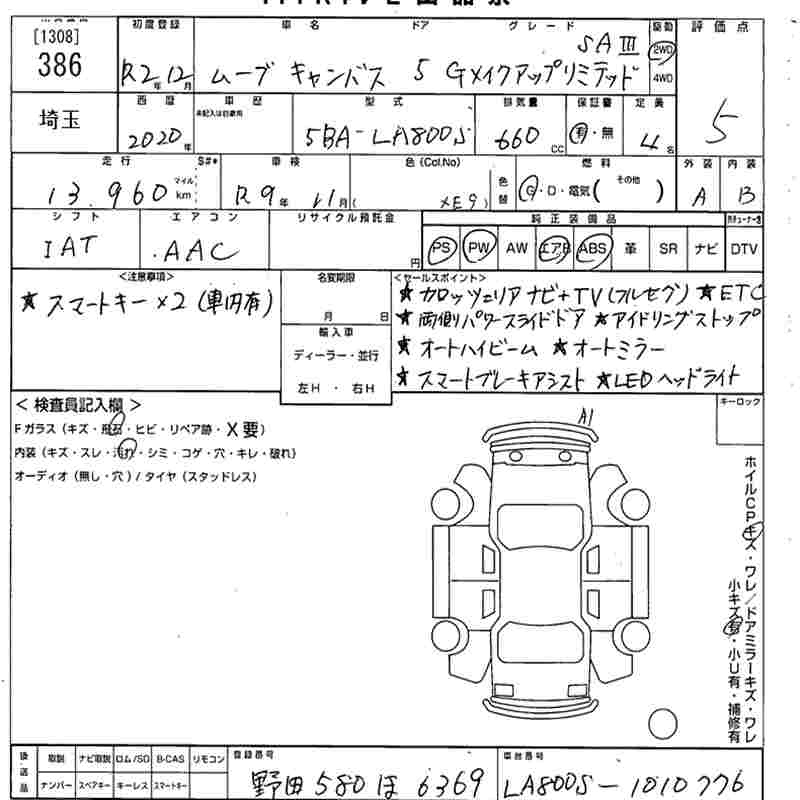 [1308]
386
初度登録 車名 ドア グレード 駆動 評価点
R2年12月 ムーブ キャンバス 5 GメイクアップリミテッドSAⅢ 2WD 4WD
5
埼玉
西暦 車歴 型式 排気量 保証書 定員
2020年 未記入は自家用 5BA-LA800S 660cc 有・無 4名
走行 S#* 車検 色(Col,No) 燃料 外装 内装
13,960 マイル km R9年11月 ( XE9) 色替 G・D・電気( その他 ) A B
シフト エアコン リサイクル預託金 純正装備品
IAT AAC 円 PS PW AW エアB ABS 革 SR ナビ DTV
<注意事項> 名変期限 <セールスポイント>
★スマートキー×2(車内有)
月 日
輸入車
ディーラー・並行
左H ・ 右H
★カロッツェリア ナビ+TV(フルセグ) ★ETC
★両側パワースライドドア ★アイドリングストップ
★オートハイビーム ★オートミラー
★スマートブレーキアシスト ★LEDヘッドライト
<検査員記入欄> キーロック
Fガラス(キズ・飛石・ヒビ・リペア跡・X要)
内装(キズ・スレ・汚れ・シミ・コゲ・穴・キレ・破れ)
オーディオ(無し・穴)/タイヤ(スタッドレス)
A1
ホイルCPキズ・ワレ/ドアミラーキズ・ワレ
小キズ有・小U有・補修有
後送品 取説 ナビ取説 ロム/SD B-CAS リモコン 登録番号 車台番号
ナンバー スペアキー キーレス スマートキー 野田 580 ほ 6369 LA800S-1010776